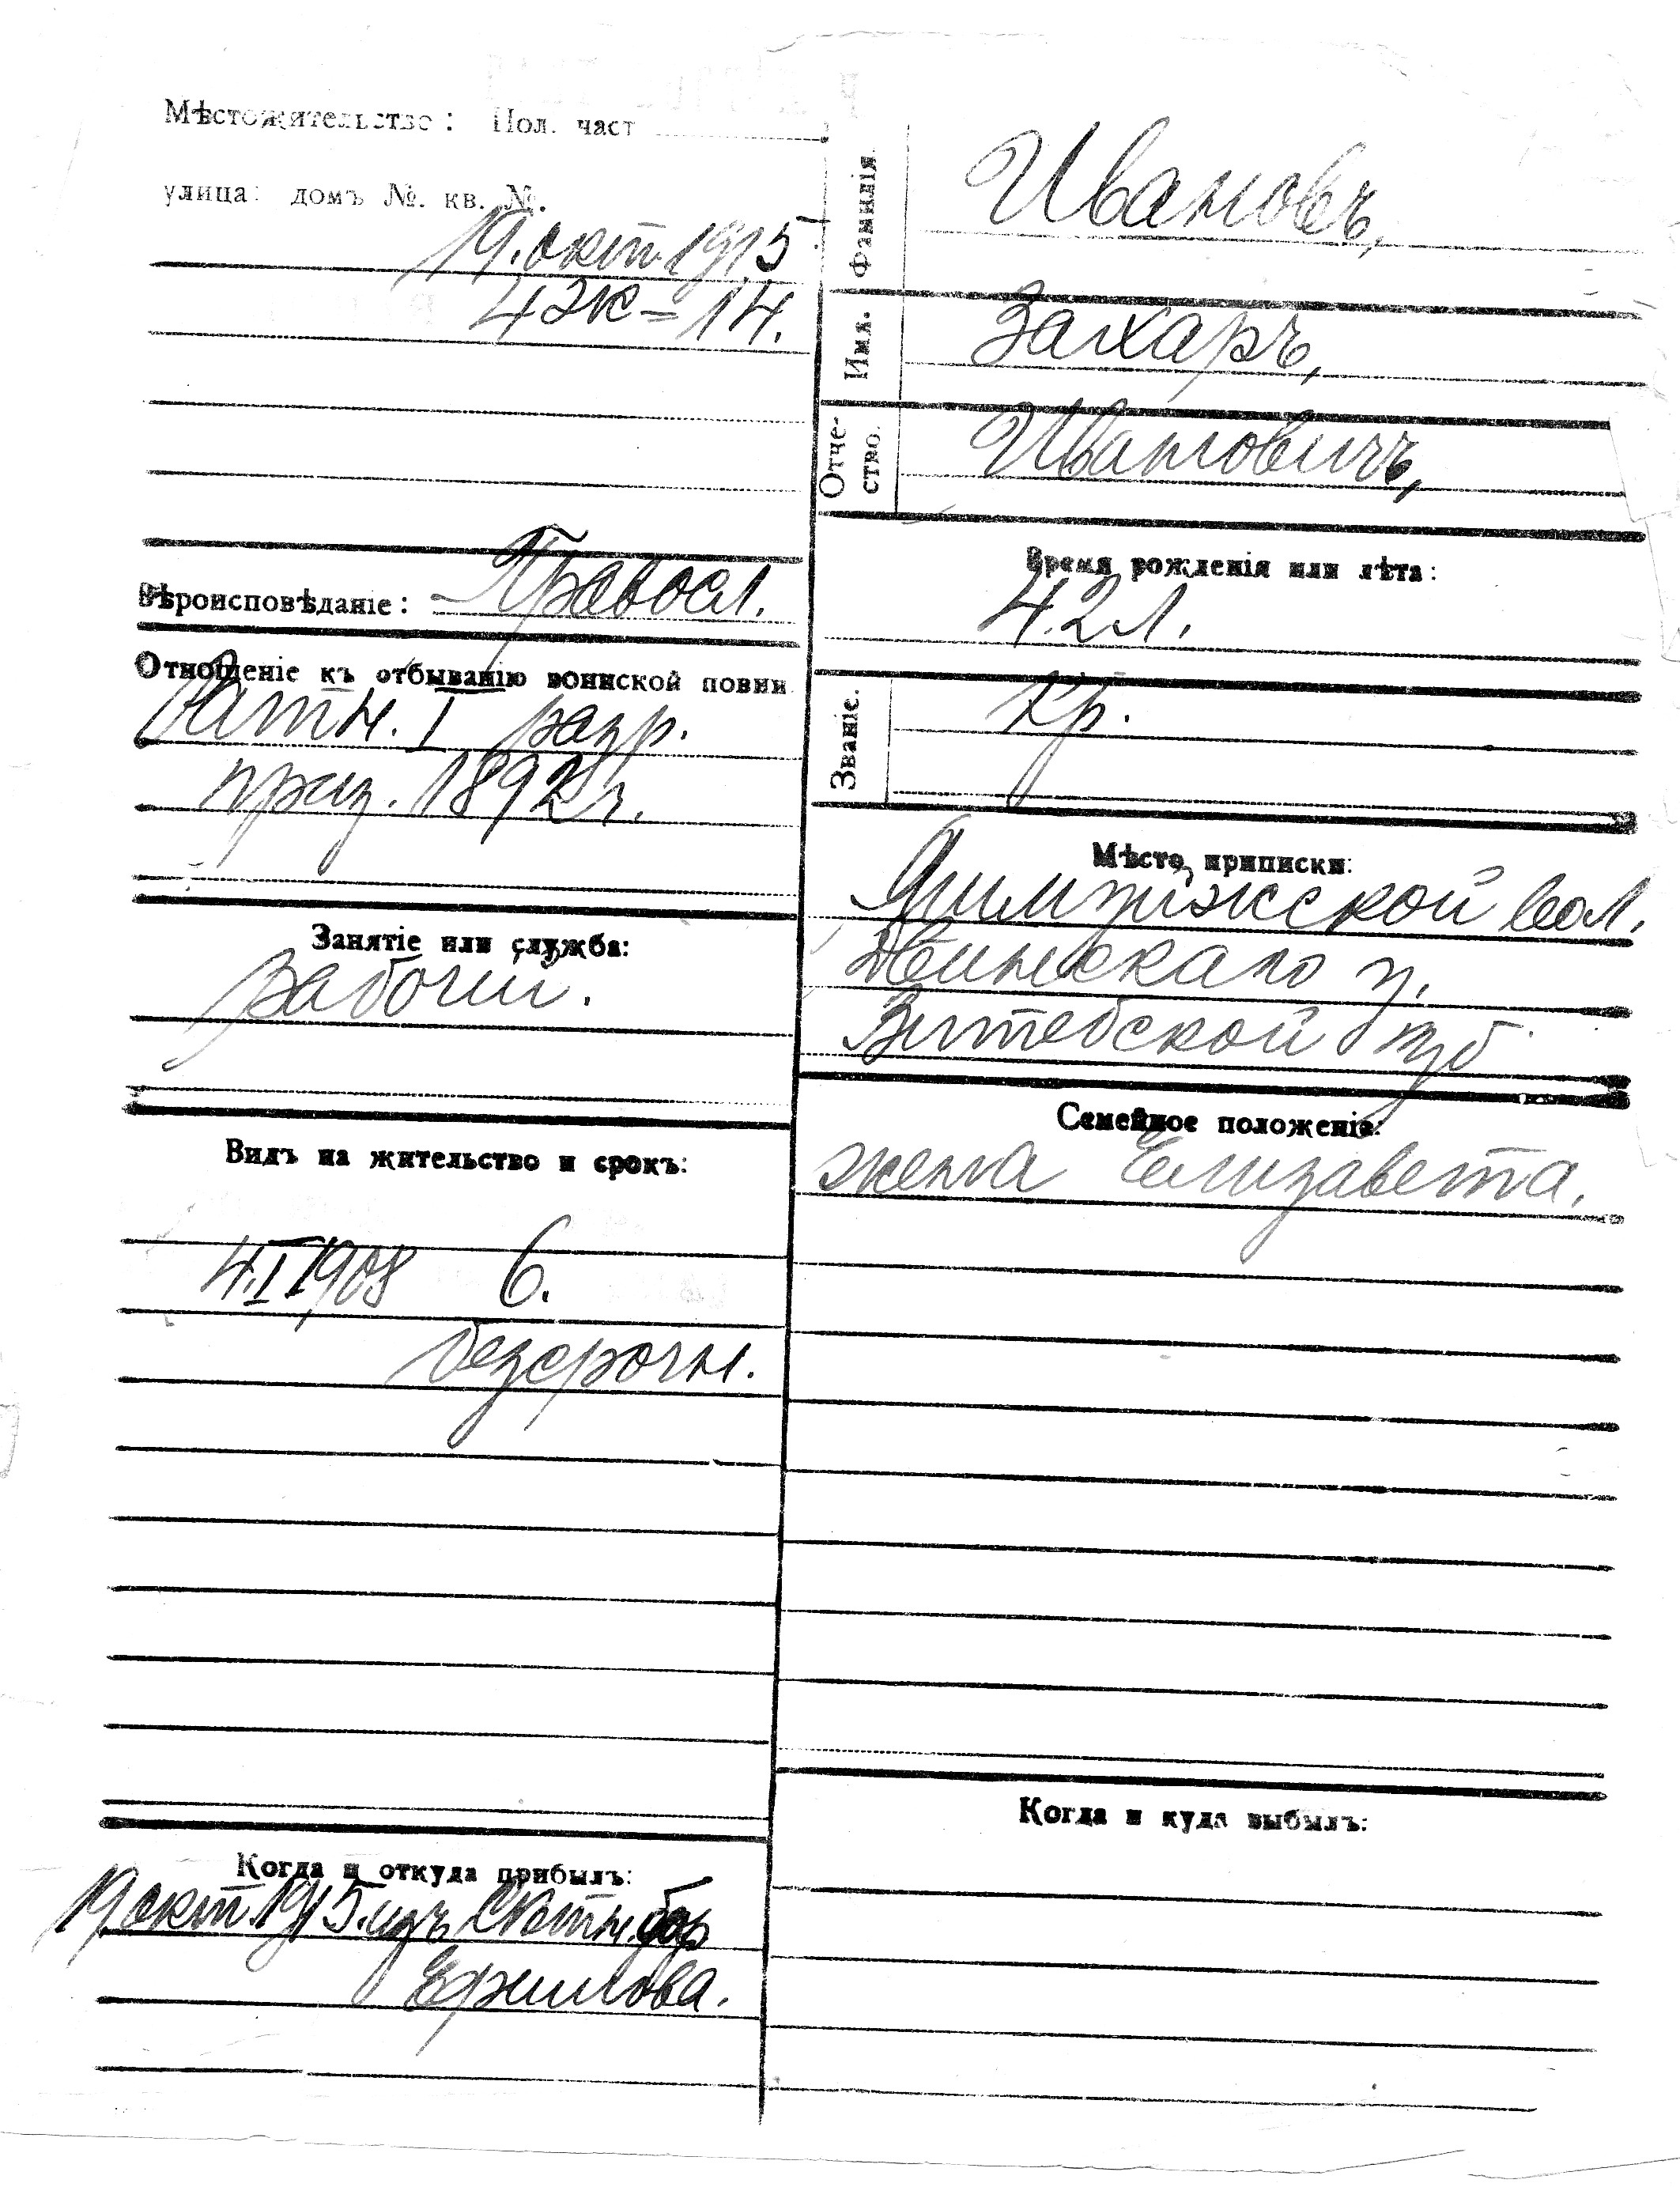 Мѣстожительство: Пол. част
улица: домъ №. кв. №.
19. окт. 1915
4 Эк = 14.
Вѣроисповѣданіе: Правосл.
Отношеніе къ отбыванію воинской повин
Ратн. I разр.
приз. 1892 г.
Занятіе или служба:
рабочій.
Видъ на жительство и срокъ:
4.I 1908 6.
безсрочн.
Когда и откуда прибылъ:
19 окт. 1915. изъ
Ермилова.
Фамилія. Ивановъ,
Имя. Захаръ,
Отче-
ство. Ивановичъ,
Время рожденія или лѣта:
42 л.
Званіе. кр.
Мѣсто приписки:
вол.
Двинскаго у.
Витебской губ.
Семейное положеніе:
жена Елизавета.
Когда и куда выбылъ: